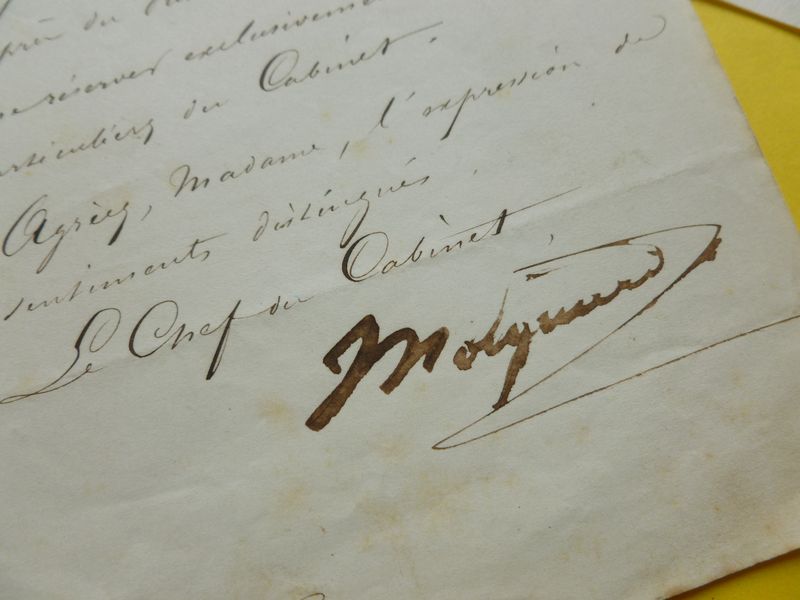 se réserver exclusivement
particuliers du Cabinet.
Agréez, Madame, l'expression de
sentiments distingués.
Le Chef du Cabinet,
Mocquard